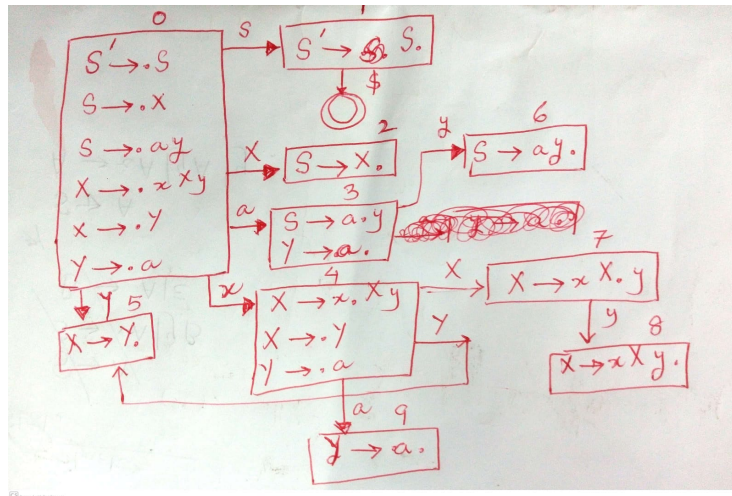 0
S' → . S
S → . X
S → . a y
X → . x X y
X → . Y
Y → . a
S
1
S' → S.
$
X
2
S → X.
a
3
S → a . y
Y → a .
y
6
S → a y .
x
4
X → x . X y
X → . Y
Y → . a
X
7
X → x X . y
y
8
X → x X y .
Y
Y
5
X → Y.
a
9
Y → a .